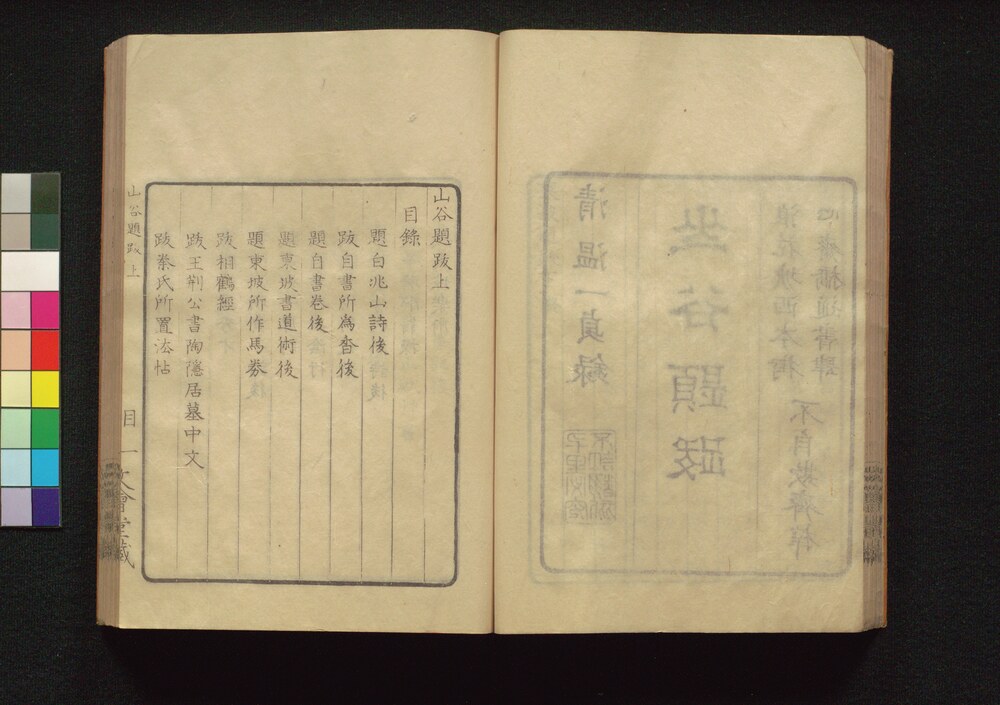 清溫一貞録
山谷題跋
不自欺齋梓
山谷題跋上
目錄
題白兆山詩後
跋自書所爲香後
題自書卷後
題東坡書道術後
題東坡所作馬券
跋相鶴經
跋王荊公書陶隱居墓中文
跋秦氏所置法帖
山谷題跋上 目 一 文會堂藏